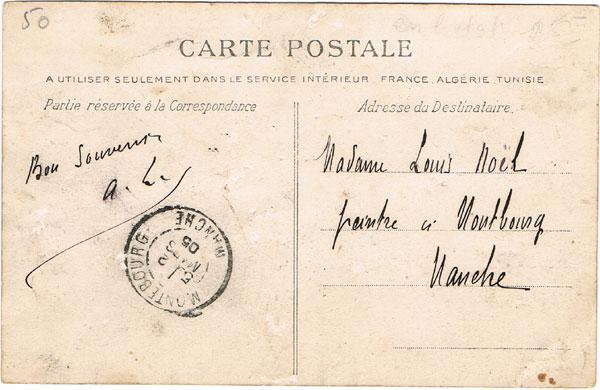 50
CARTE POSTALE
A UTILISER SEULEMENT DANS LE SERVICE INTÉRIEUR. FRANCE, ALGÉRIE, TUNISIE
Partie réservée à la Correspondance
Adresse du Destinataire.
Bon Souvenir
a. L.
MONTEBOURG
MANCHE
05
Madame Louis Noël
peintre à Montbourg
Manche